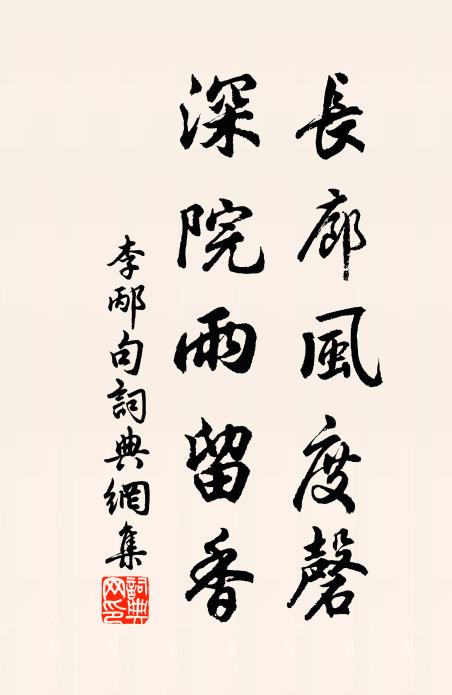 長廊風度磬
深院雨留香
李邴句詞典網集
詞典網印